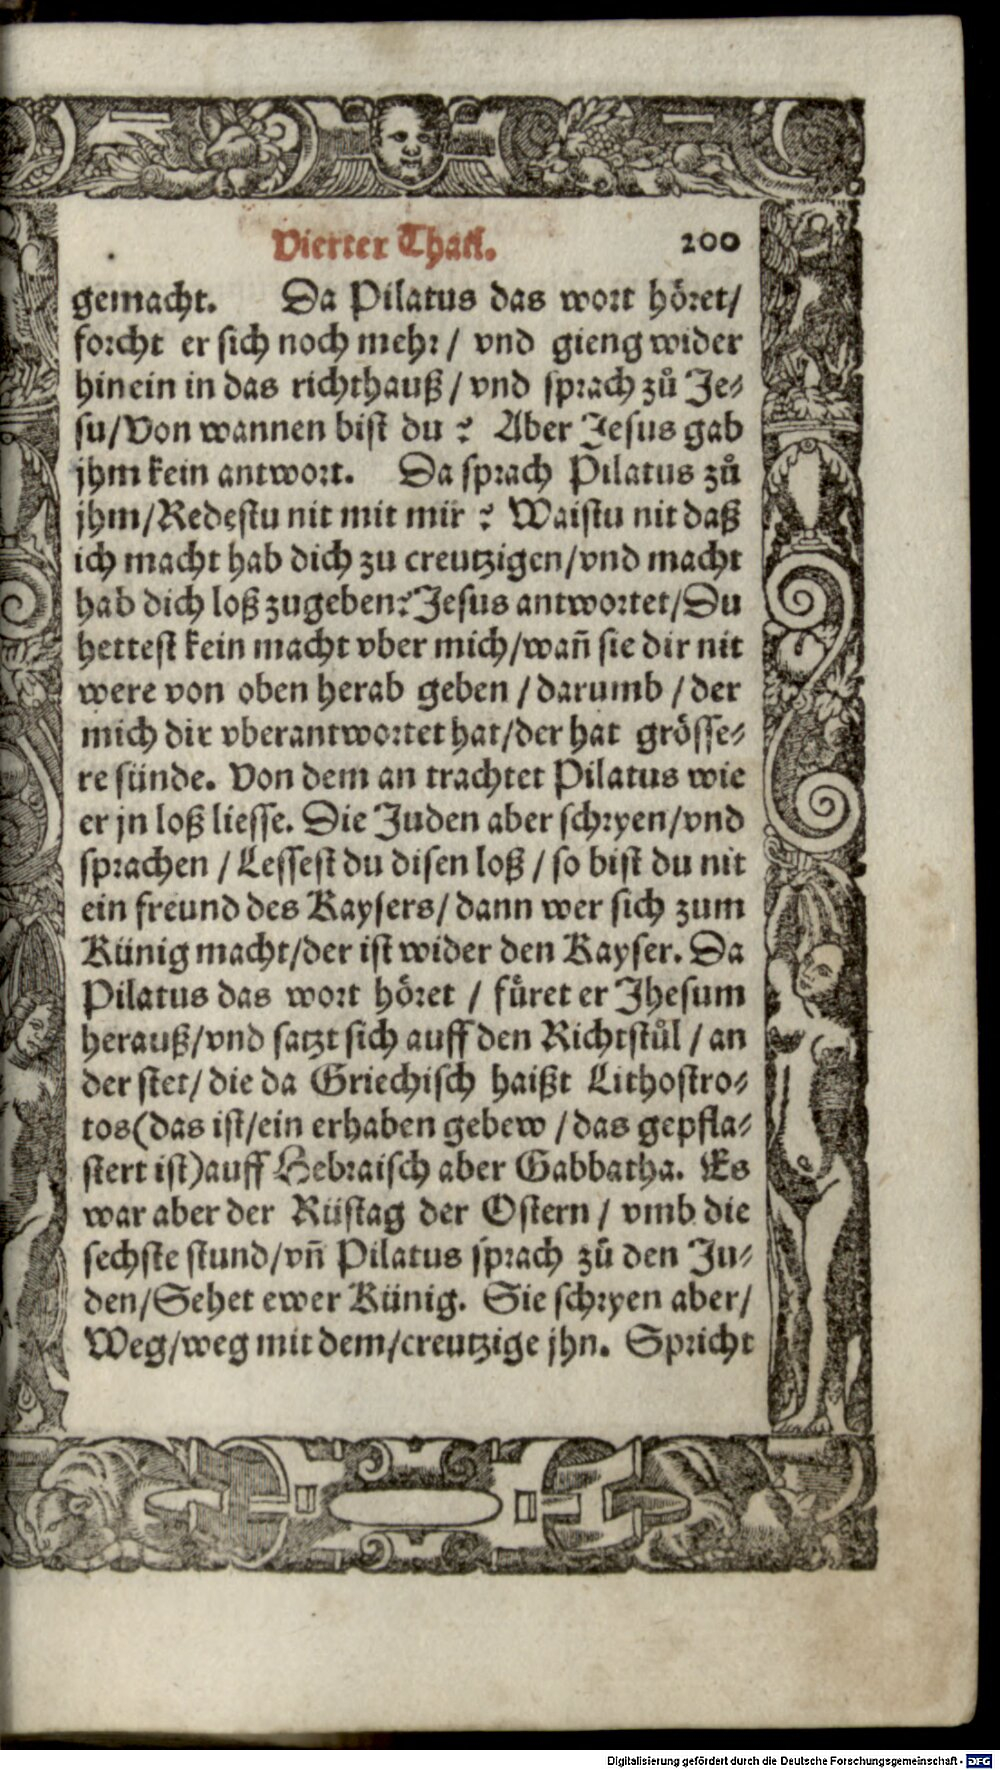 Vierter Thail. 200
gemacht. Da Pilatus das wort höret/
forcht er sich noch mehr / vnd gieng wider
hinein in das richthauß / vnd sprach zů Je-
su/Von wannen bist du ? Aber Jesus gab
jhm kein antwort. Da sprach Pilatus zů
jhm/Redestu nit mit mir ? Waistu nit daß
ich macht hab dich zu creutzigen/vnd macht
hab dich loß zugeben?Jesus antwortet/Du
hettest kein macht vber mich/wañ sie dir nit
were von oben herab geben / darumb / der
mich dir vberantwortet hat/der hat grösse-
re sünde. Von dem an trachtet Pilatus wie
er jn loß liesse. Die Juden aber schryen/vnd
sprachen / Lessest du disen loß / so bist du nit
ein freund des Kaysers/ dann wer sich zum
Künig macht/der ist wider den Kayser. Da
Pilatus das wort höret / füret er Jhesum
herauß/vnd satzt sich auff den Richtstůl / an
der stet/ die da Griechisch haißt Lithostro-
tos(das ist/ein erhaben gebew / das gepfla-
stert ist)auff Hebraisch aber Gabbatha. Es
war aber der Rüstag der Ostern / vmb die
sechste stund/vñ Pilatus sprach zů den Ju-
den/Sehet ewer Künig. Sie schryen aber/
Weg/weg mit dem/creutzige jhn. Spricht
Digitalisierung gefördert durch die Deutsche Forschungsgemeinschaft - DFG